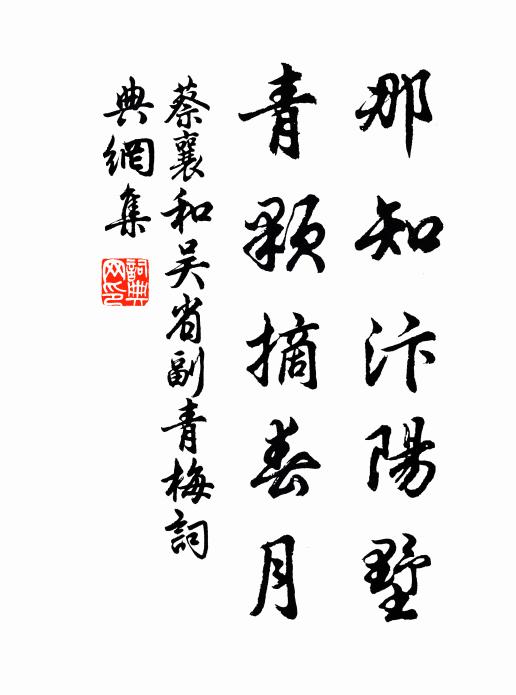 那知汴陽墅
青顆摘春月
蔡襄和吳省副青梅詞
典網集
詞典網印